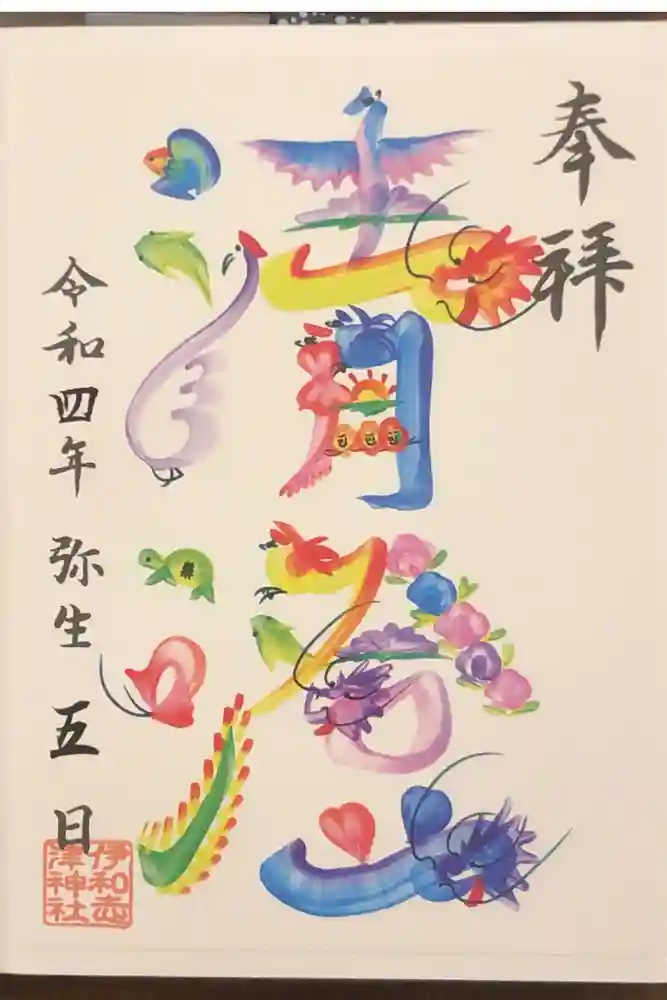 奉拝
清澄
令和四年 弥生 五日
伊和志
津神社